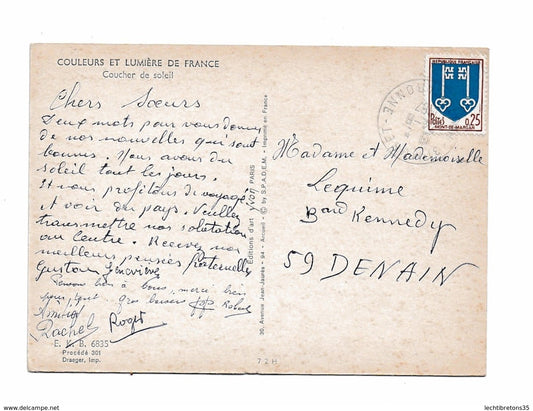 COULEURS ET LUMIÈRE DE FRANCE
Coucher de soleil
Chers Sœurs
Deux mots pour vous donner
de nos nouvelles qui sont
bonnes. Nous avons du
soleil tout les jours.
Et nous profitons de voyager
et voir du pays. Veuillez
transmettre nos salutation
au Centre. Recevez nos
meilleurs pensées fraternelles
Gustave Geneviève
Pensons bien à vous, merci bien
pour tout. Gros baisers
Rachel Roger
E. K. B. 6835
Procédé 301
Draeger, Imp.
Editions d'art YVON PARIS
30, Avenue Jean-Jaurès - 94 - Arcueil - © by S.P.A.D.E.M. - Imprimé en France
72H
REPUBLIQUE FRANÇAISE
Postes 0,25
MONT-DE-MARSAN
Madame et Mademoiselle
Lequime
Bard Kennedy
59 DENAIN
www.delcampe.net
lechtibretons35